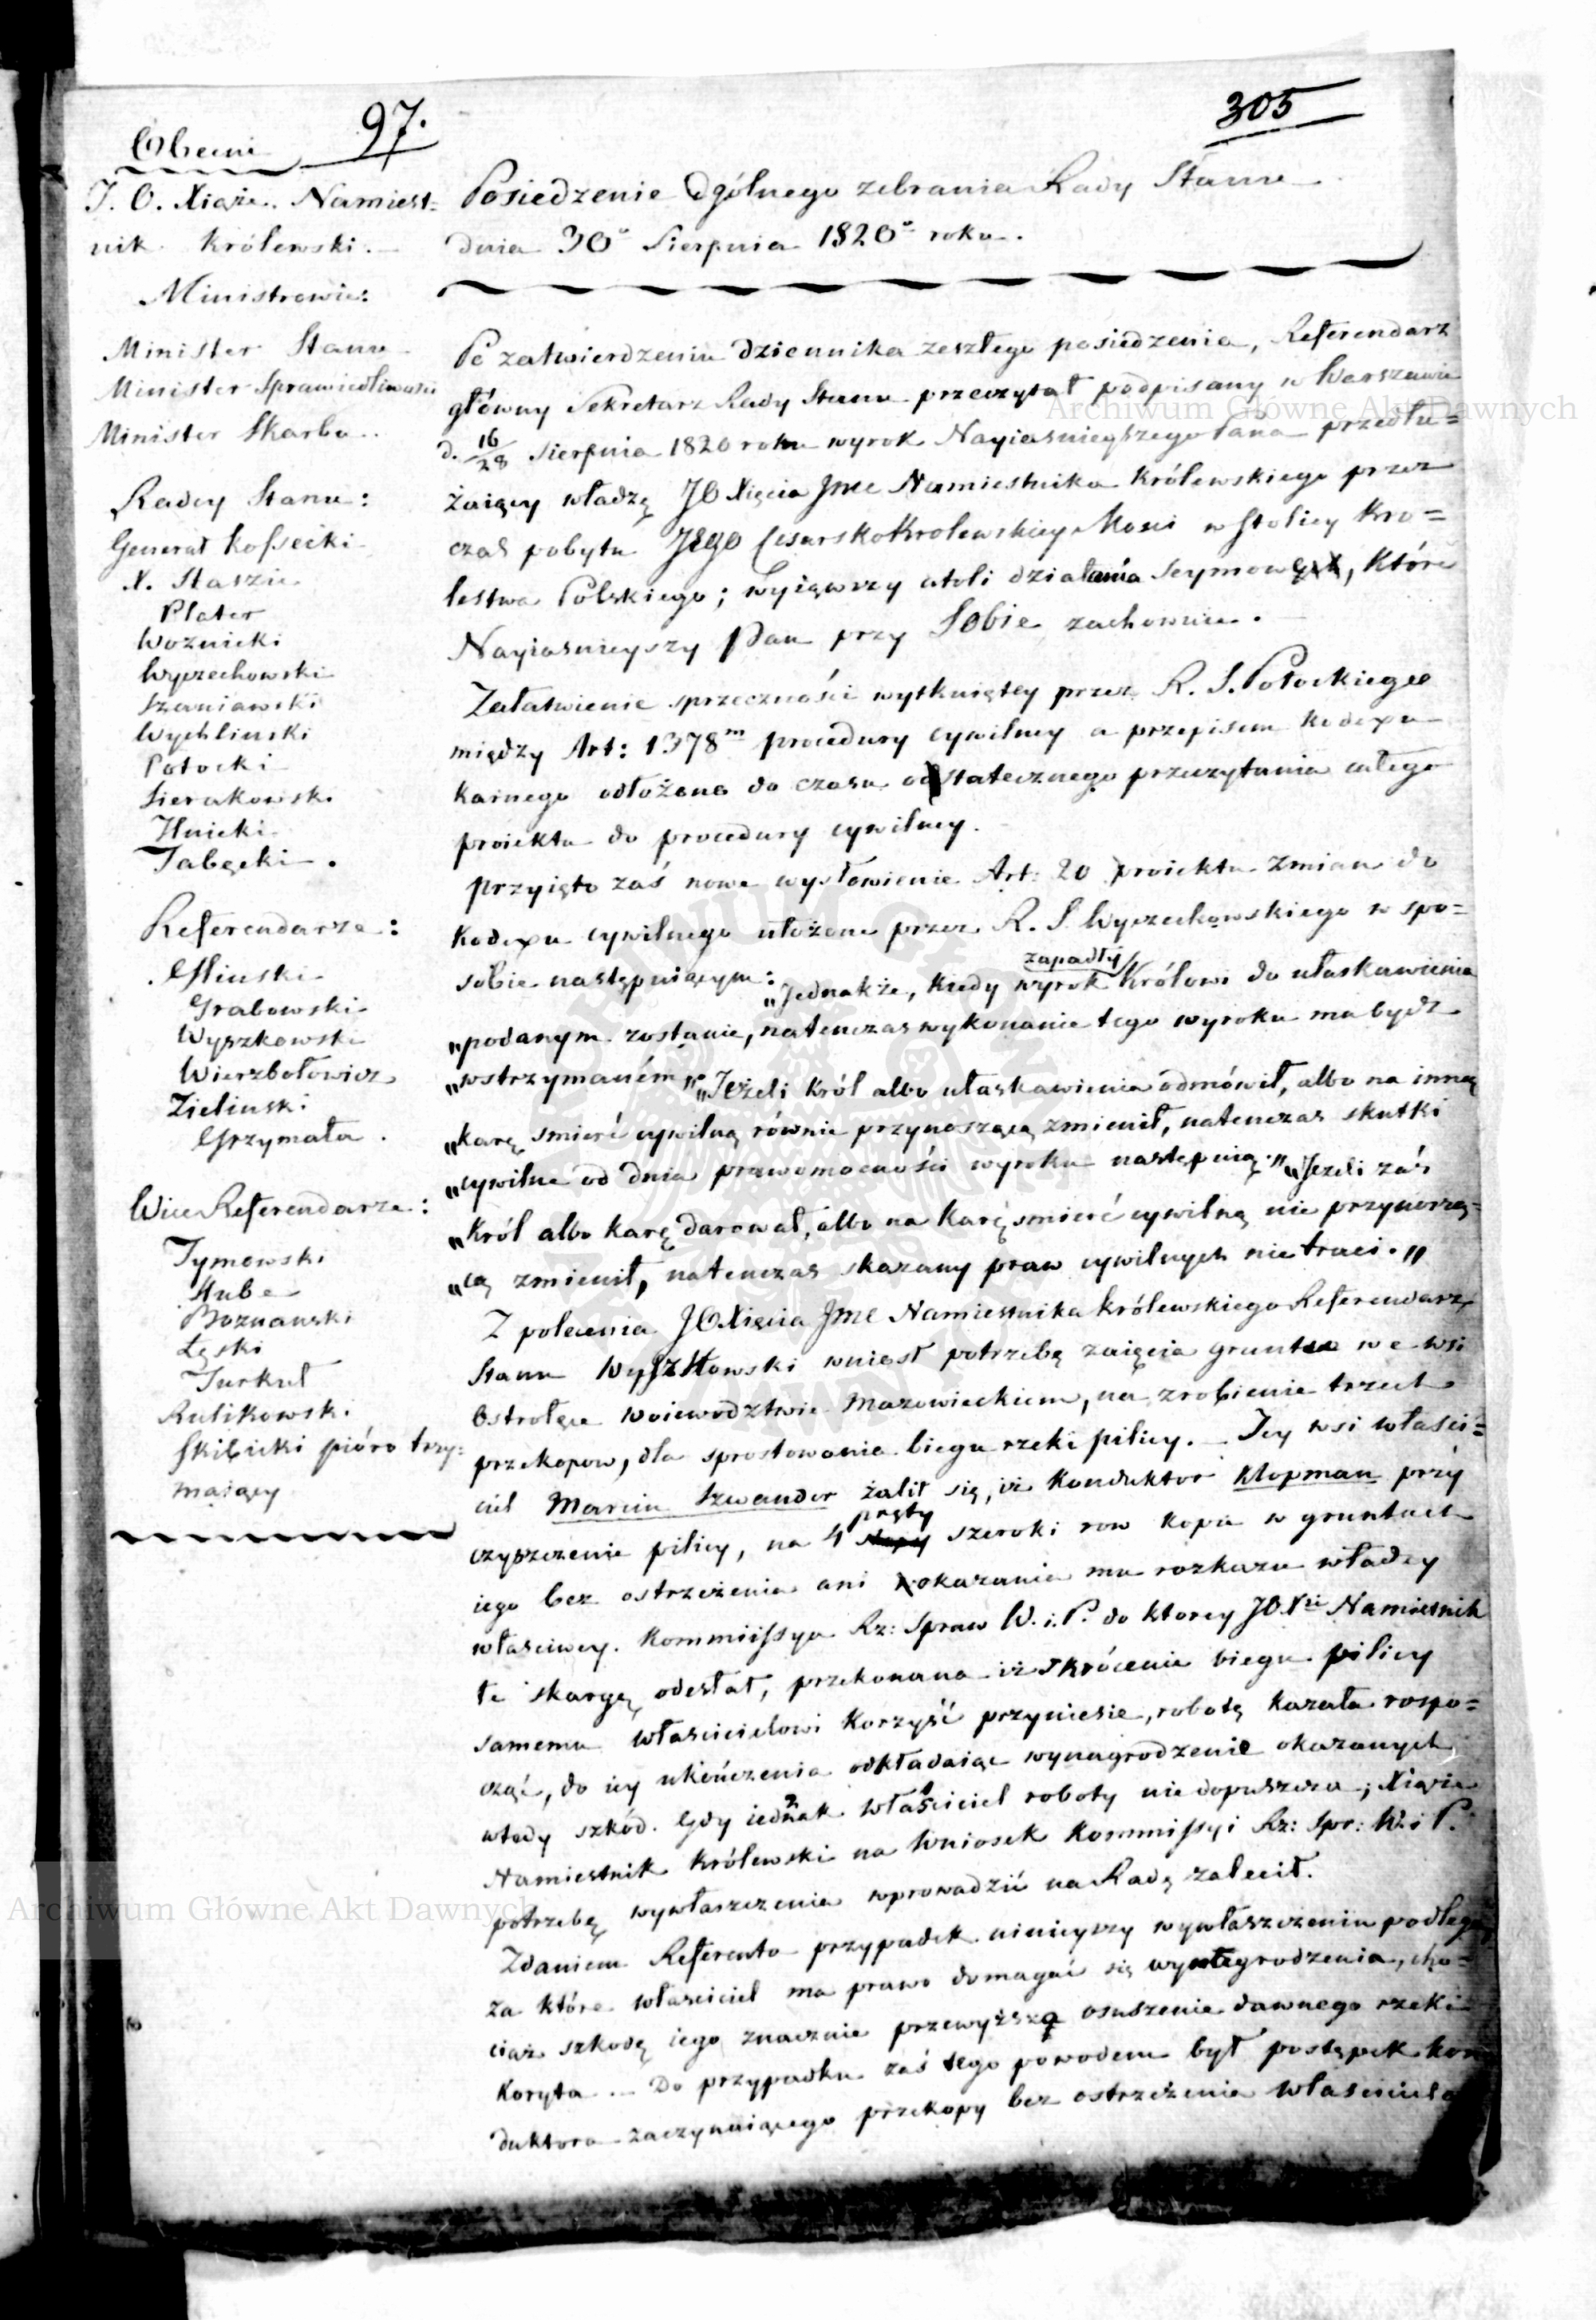 97.
305
Obecni
J. O. Xiąże Namiest=
nik Królewski.
Ministrowie:
Minister Stanu
Minister Sprawiedliwości
Minister Skarbu.
Radcy Stanu:
Generał Kossecki
X. Staszic
Plater
Woznicki
Wyczechowski
Szaniawski
Wychlinski
Potocki
Sierakowski
Ilnicki
Tabęcki.
Referendarze:
Glinski
Grabowski
Wyszkowski
Wierzbołowicz
Zielinski
Grzymała.
Wice Referendarze:
Tymowski
Hube
Poznanski
Łęski
Turkuł
Rulikowski
Skibicki pióro trzy=
maiący
Posiedzenie Ogólnego zebrania Rady Stanu
dnia 30o Sierpnia 1820o roku.
Po zatwierdzeniu dziennika zeszłego posiedzenia, Referendarz
główny Sekretarz Rady Stanu przeczytał podpisany w Warszawie
d. 16/28 Sierpnia 1820 roku wyrok Nayiasnieyszego Pana przedłu=
żaiący władzę JO Xięcia Jmc Namiestnika Królewskiego przez
czas pobytu JEGO Cesarsko Krolewskiey Mosci w stolicy Kro=
lestwa Polskiego; wyiąwszy atoli działania Seymowe, które
Nayiasnieyszy Pan przy Sobie zachowuie.
Załatwienie sprzeczności wytkniętey przez R. S. Potockiego
między Art: 1378m procedury cywilney a przepisem kodexu
karnego odłożono do czasu ostatecznego przeczytania całego
proiektu do procedury cywilney.
przyięto zaś nowe wysłowienie Art: 20 proiektu zmian do
kodexu cywilnego ułożone przez R. S. Wyczechowskiego w spo=
sobie następuiącym: „Jednakże, kiedy zapadły wyrok Królowi do ułaskawienia
„podanym zostanie, natenczas wykonanie tego wyroku ma bydz
„wstrzymaném„ „Jeżeli Król albo ułaskawienia odmówił, albo na inną
„karę smierć cywilną równie przynoszącą zmienił, natenczas skutki
„cywilne od dnia prawomocności wyroku nastepuią.„ „Jeżeli zaś
„Król albo karę darował, albo na karę smierć cywilną nie przynoszą=
„cą zmienił, natenczas skazany praw cywilnych nie traci.„
Z polecenia JO Xięcia Jmc Namiestnika królewskiego Referendarz
Stanu Wyszkowski wniosł potrzebę zaięcia gruntu we wsi
Ostrołęce woiewodztwie Mazowieckiem, na zrobienie trzech
przekopow, dla sprostowania biegu rzeki pilicy. Jey wsi właści=
ciel Marcin Szwander żalił się, iż Konduktor Klopman przy
czyszczenie pilicy, na 4 pręty szeroki row kopie w gruntach
iego bez ostrzeżenia ani okazania mu rozkazu władzy
właściwey. Kommissya Rz: Spraw W. i. P. do ktorey JO Xże Namiestnik
tę skargę odesłał, przekonana iż skrócenie biegu pilicy
samemu właścicielowi korzyść przyniesie, robotę kazała rospo=
cząć, do iey ukończenia odkładaiąc wynagrodzenie okazanych
wtedy szkód. Gdy iednak właściciel roboty nie dopuszcza; Xiąże
Namiestnik Królewski na Wniosek Kommissyi Rz: Spr: W. i P.
potrzebę wywłaszczenia wprowadzić na Radę zalecił.
Zdaniem Referenta przypadek ninieyszy wywłaszczeniu podlega
za które własciciel ma prawo domagać się wynagrodzenia, cho=
ciaz szkodę iego znacznie przewyższa osuszenie dawnego rzeki
koryta. Do przypadku zaś tego powodem był postępek kon
duktora zaczynaiącego przekopy bez ostrzeżenia właściciela
Archiwum Główne Akt Dawnych
Archiwum Główne Akt Dawnych